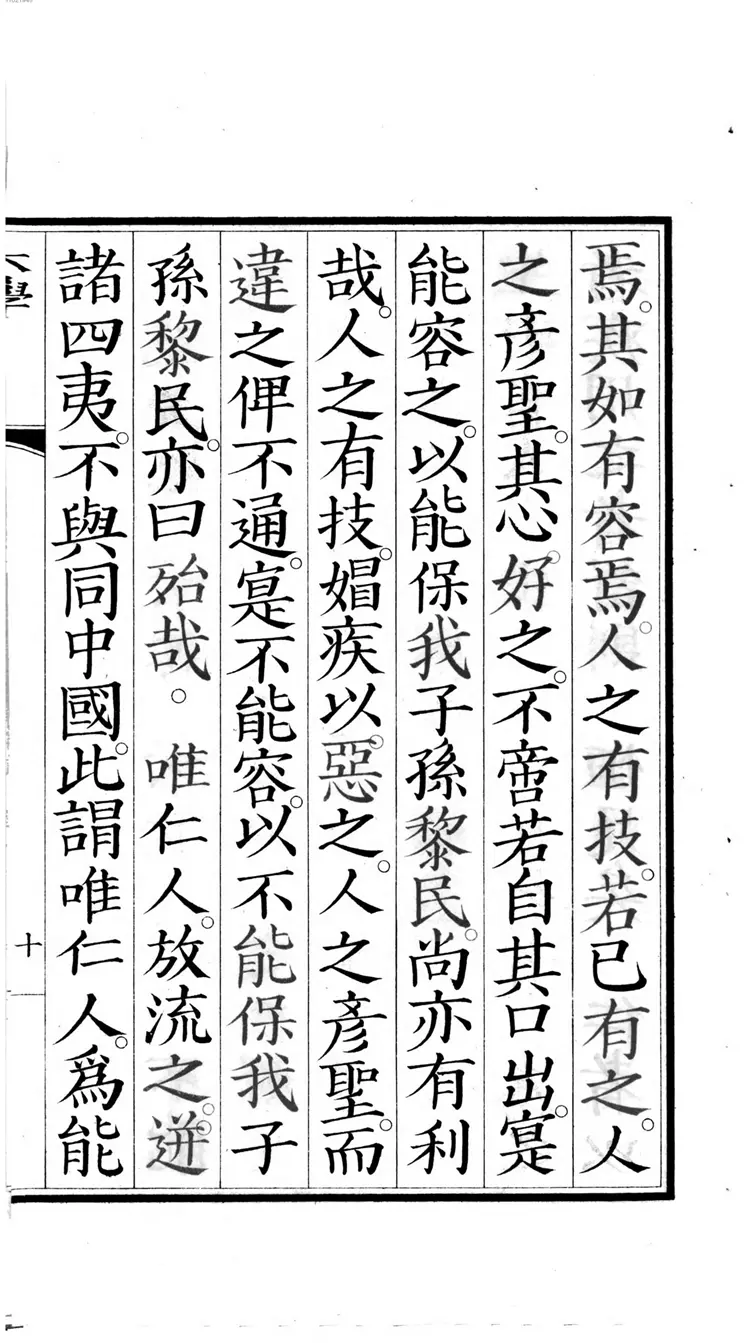 焉。其如有容焉。人之有技。若已有之。人
之彥聖。其心好之。不啻若自其口出。寔
能容之。以能保我子孫黎民。尚亦有利
哉。人之有技。媢疾以惡之。人之彥聖。而
違之俾不通。寔不能容。以不能保我子
孫黎民。亦曰殆哉。唯仁人。放流之。迸
諸四夷。不與同中國。此謂唯仁人。爲能
大學
十